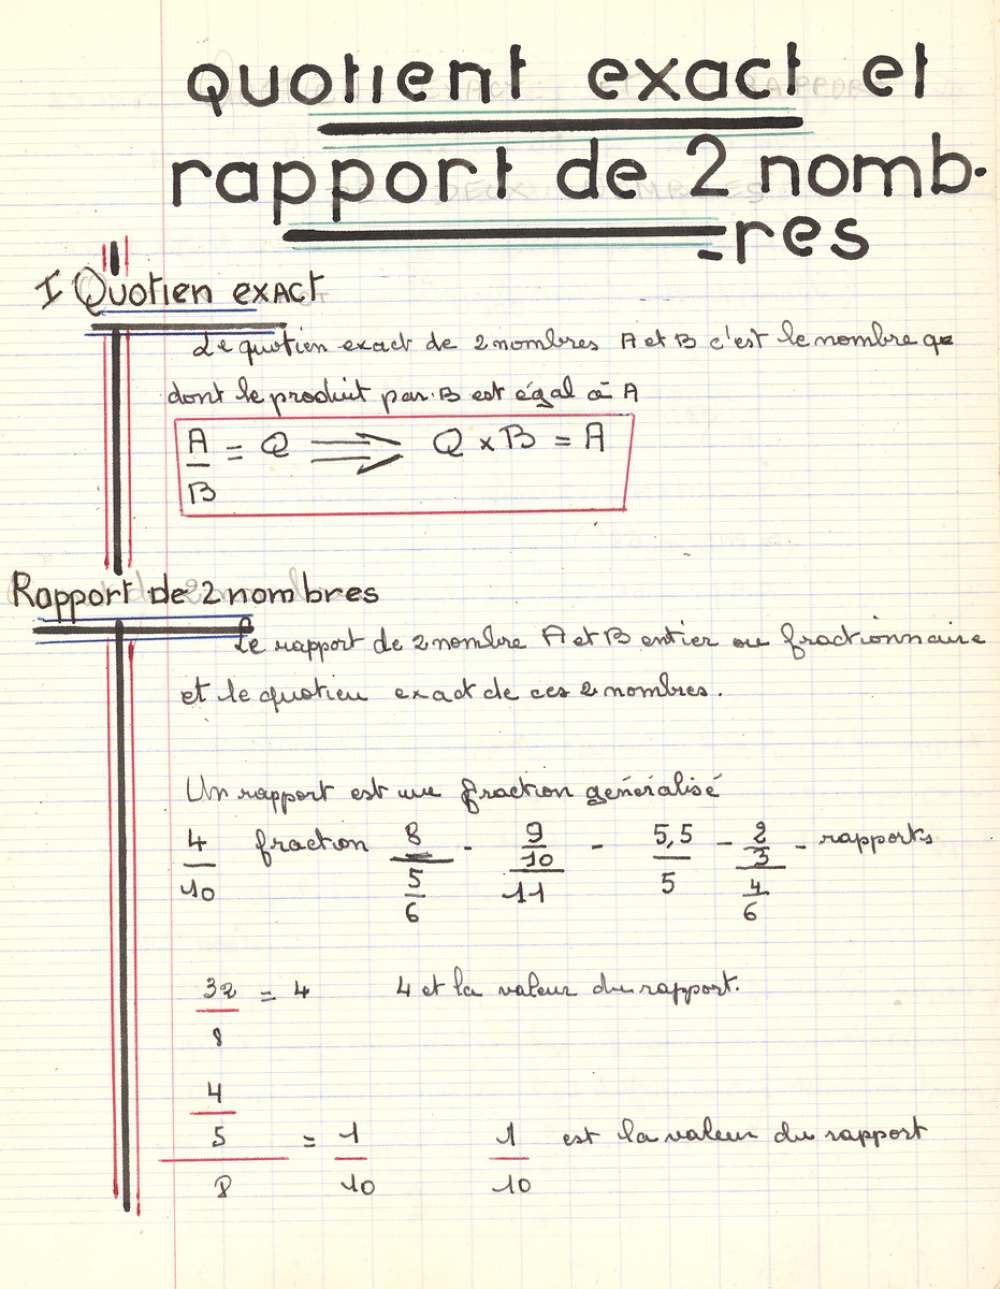 quotient exact et
rapport de 2 nomb-
-res
I Quotien exact
Le quotien exact de 2 nombres A et B c'est le nombre q
dont le produit par B est égal à A
A/B = Q ⟹ Q × B = A
Rapport de 2 nombres
Le rapport de 2 nombre A et B entier ou fractionnaire
et le quotien exact de ces 2 nombres.
Un rapport est une fraction généralisé
4/10 fraction 8/(5/6) - (9/10)/11 - 5,5/5 - (2/3)/(4/6) - rapports
32/8 = 4 4 et la valeur du rapport.
(4/5)/8 = 1/10 1/10 est la valeur du rapport